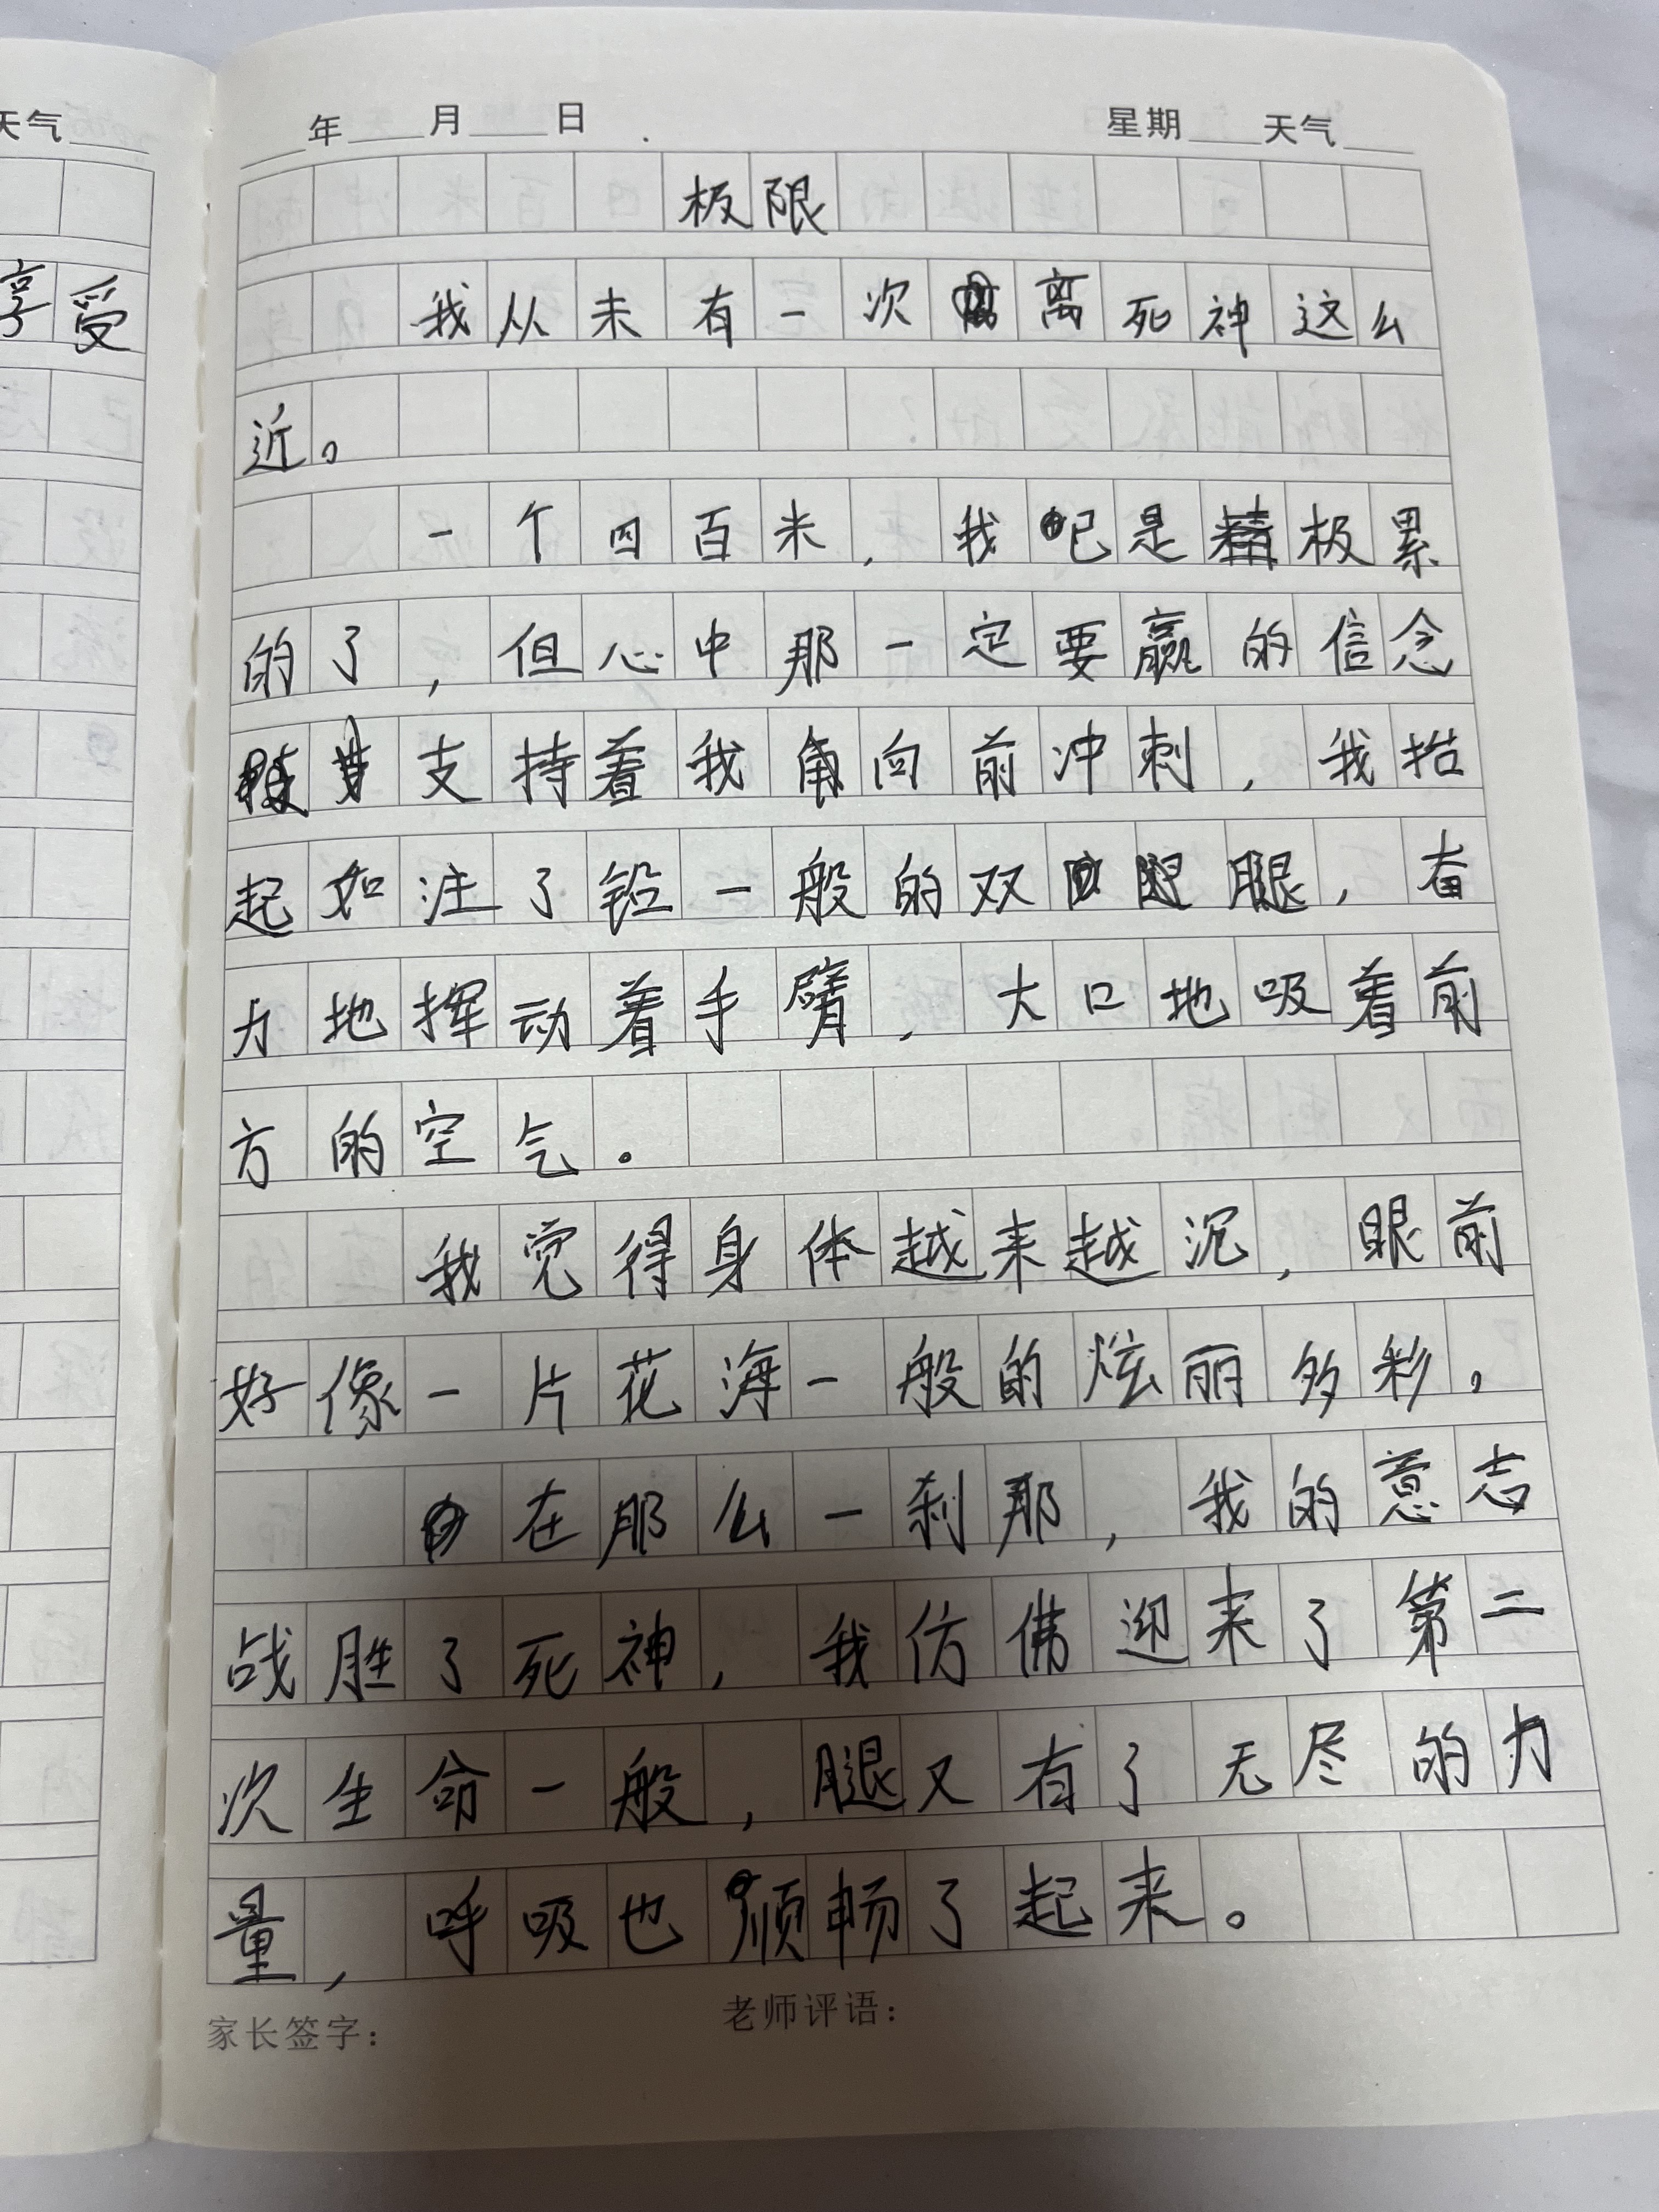 天气
享受
年 月 日 星期 天气
极限
我从未有一次离死神这么
近。
一个四百米，我已是极累
的了，但心中那一定要赢的信念
支持着我向前冲刺，我抬
起如注了铅一般的双腿，奋
力地挥动着手臂，大口地吸着前
方的空气。
我觉得身体越来越沉，眼前
好像一片花海一般的炫丽多彩。
在那么一刹那，我的意志
战胜了死神，我仿佛迎来了第二
次生命一般，腿又有了无尽的力
量，呼吸也顺畅了起来。
家长签字： 老师评语：